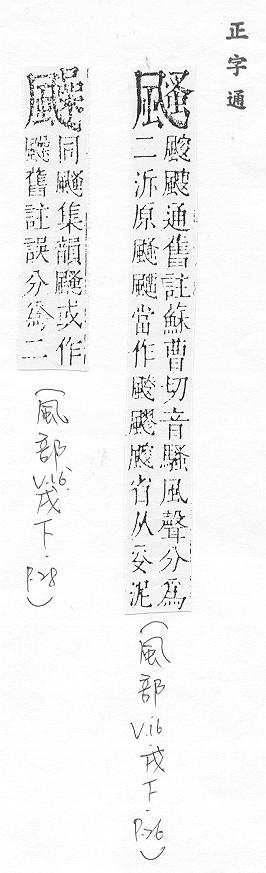 正字通
颾
通舊註蘇曹切音騷風聲分爲
二泝原颾當作省从叜泥
(風部V.16.戌下.P.26)
同颾集韻颾或作
舊註誤分爲二
(風部V.16.戌下.P.28)